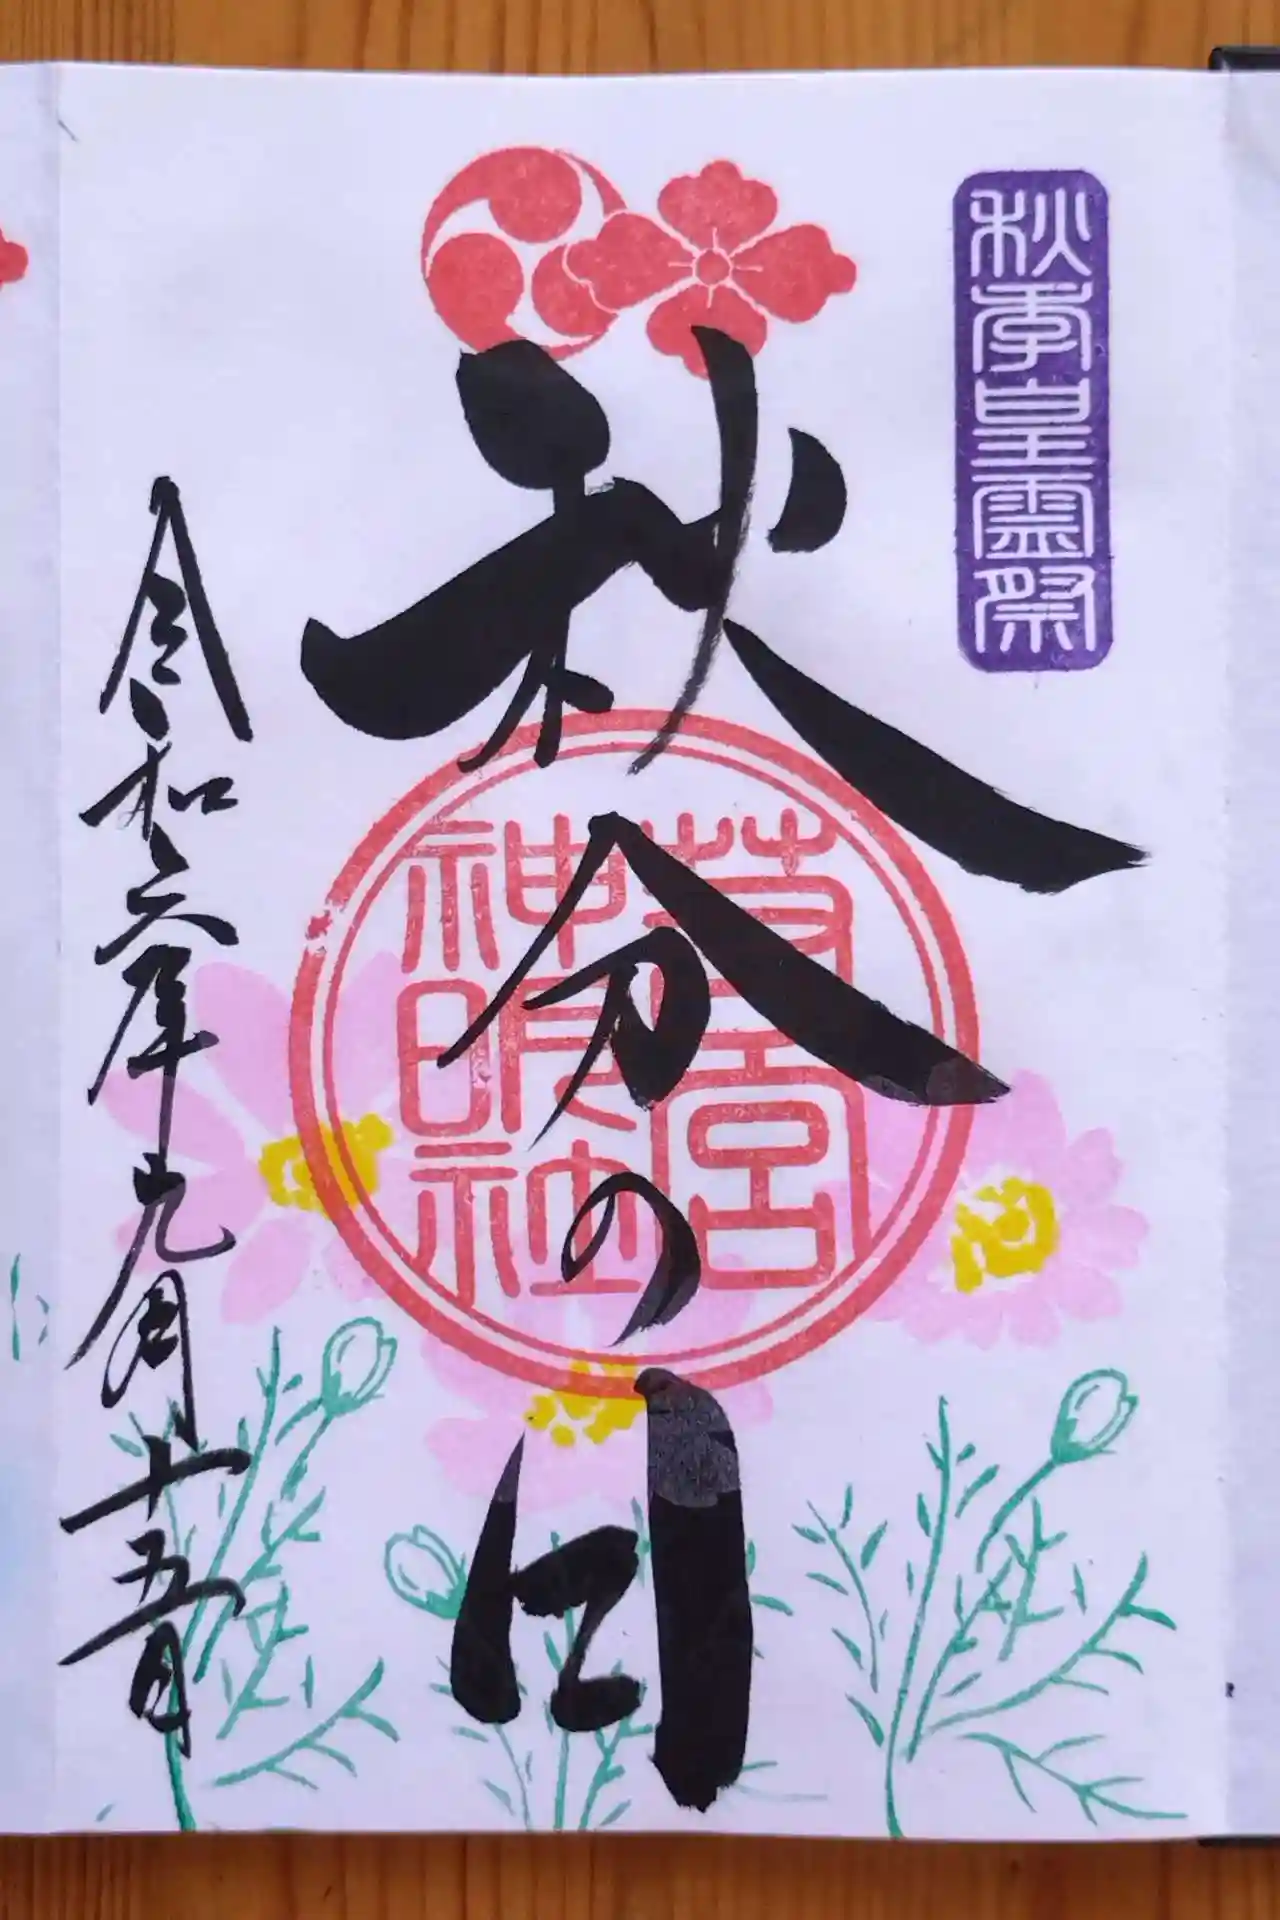 秋季皇霊祭
秋分の日
若宮
神明社
令和六年九月十五日